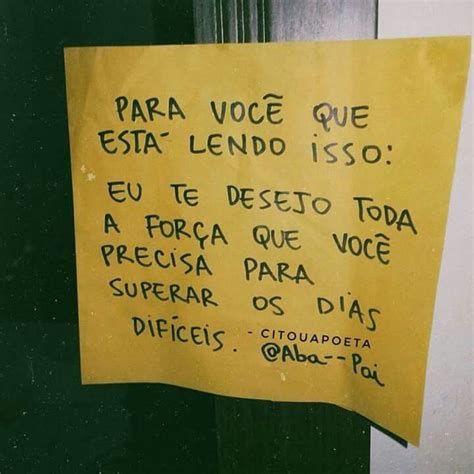 PARA VOCÊ QUE
ESTÁ LENDO ISSO:
EU TE DESEJO TODA
A FORÇA QUE VOCÊ
PRECISA PARA
SUPERAR OS DIAS
DIFÍCEIS. - CITOUAPOETA
@Aba--Pai